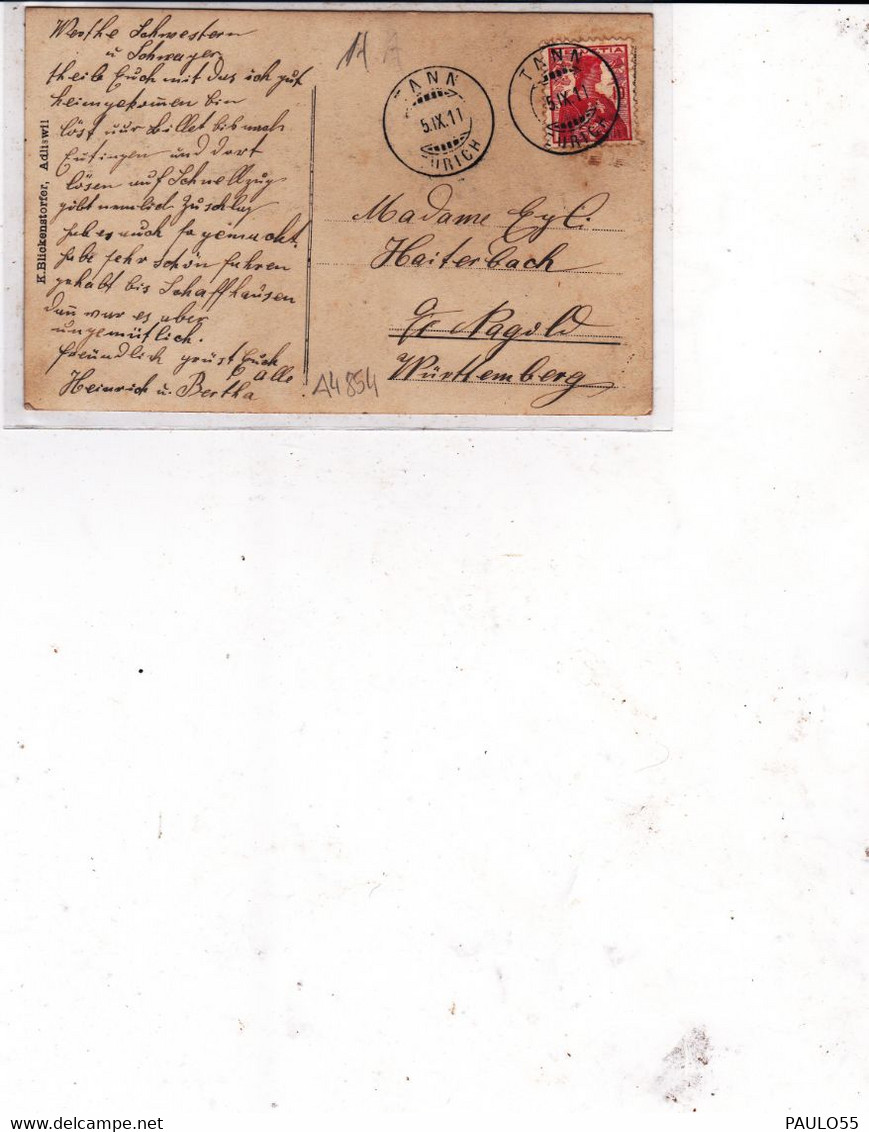 Werthe Schwestern
u Schwager
theile Euch mit das ich gut
heimgekommen bin
löst nur Billet bis nach
Eutingen und dort
lösen auf Schnellzug
gibt nemlich Zuschlag
hab es auch so gemacht.
habe sehr schön fahren
gehabt bis Schaffhausen
dan war es aber
ungemütlich.
freundlich grüst Euch
Alle
Heinrich u. Bertha
K. Blickenstorfer, Adliswil
14 A
TANN
5.IX.11
ZÜRICH
TANN
5.IX.11
ZÜRICH
HELVETIA
Madame
Haiterbach
Nagold
Württemberg
A4854
PAULO55